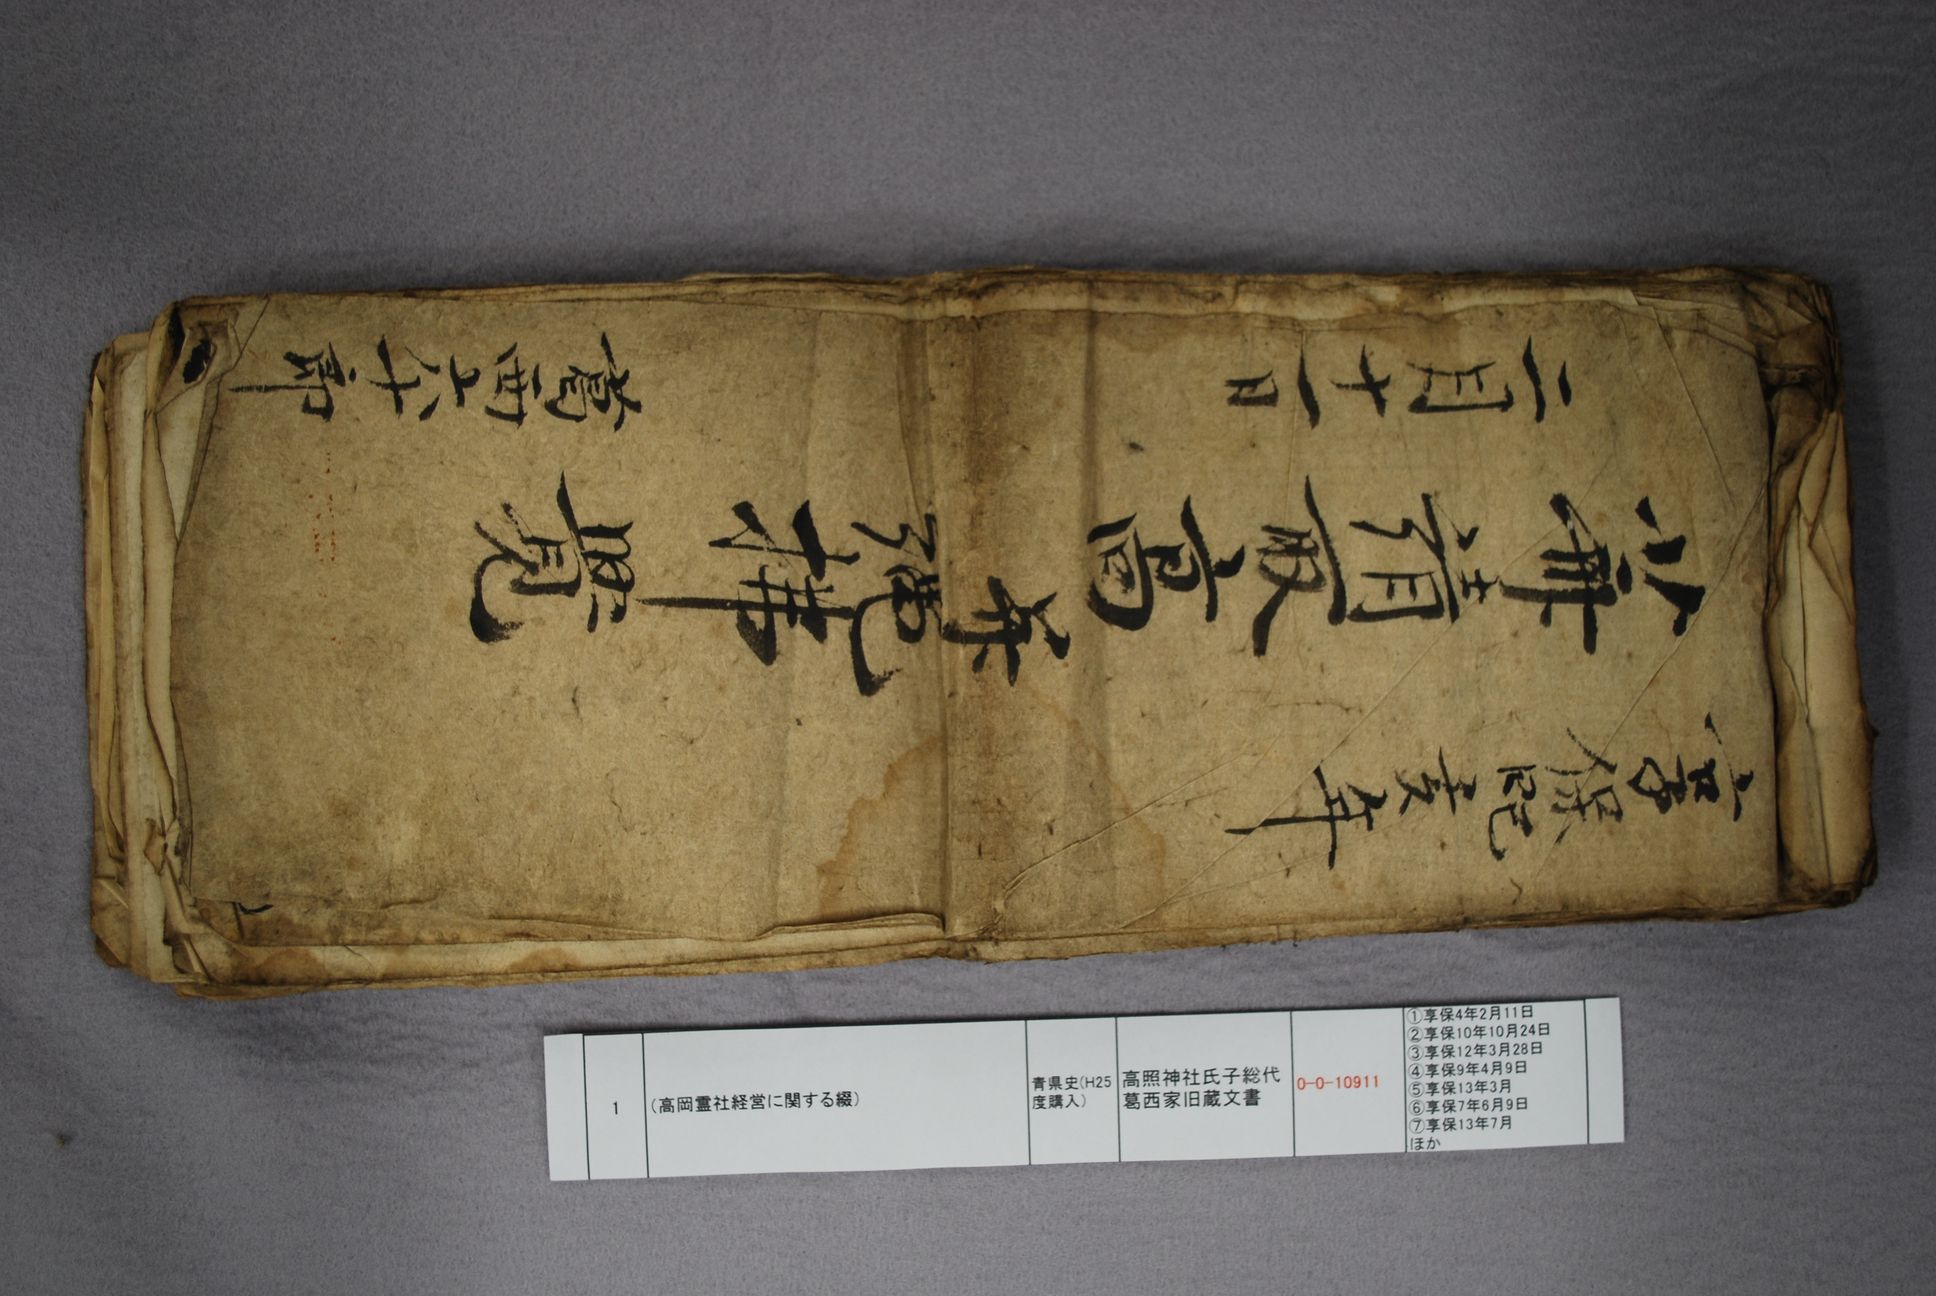 享保四己亥年
高 并 覚
二月十一日 葛西
1
(高岡霊社経営に関する綴)
青県史(H25
度購入)
高照神社氏子総代
葛西家旧蔵文書
O-0-10911
①享保4年2月11日
②享保10年10月24日
③享保12年3月28日
④享保9年4月9日
⑤享保13年3月
⑥享保7年6月9日
⑦享保13年7月
ほか